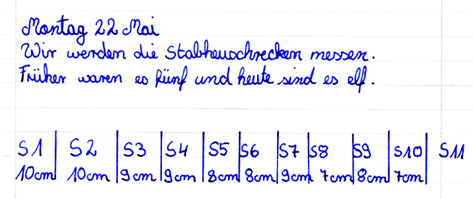 Montag 22 Mai
Wir werden die Stabheuschrecken messen.
Früher waren es fünf und heute sind es elf.
S1 | S2 | S3 | S4 | S5 | S6 | S7 | S8 | S9 | S10 | S11
10cm | 10cm | 9cm | 9cm | 8cm | 8cm | 9cm | 7cm | 8cm | 7cm |